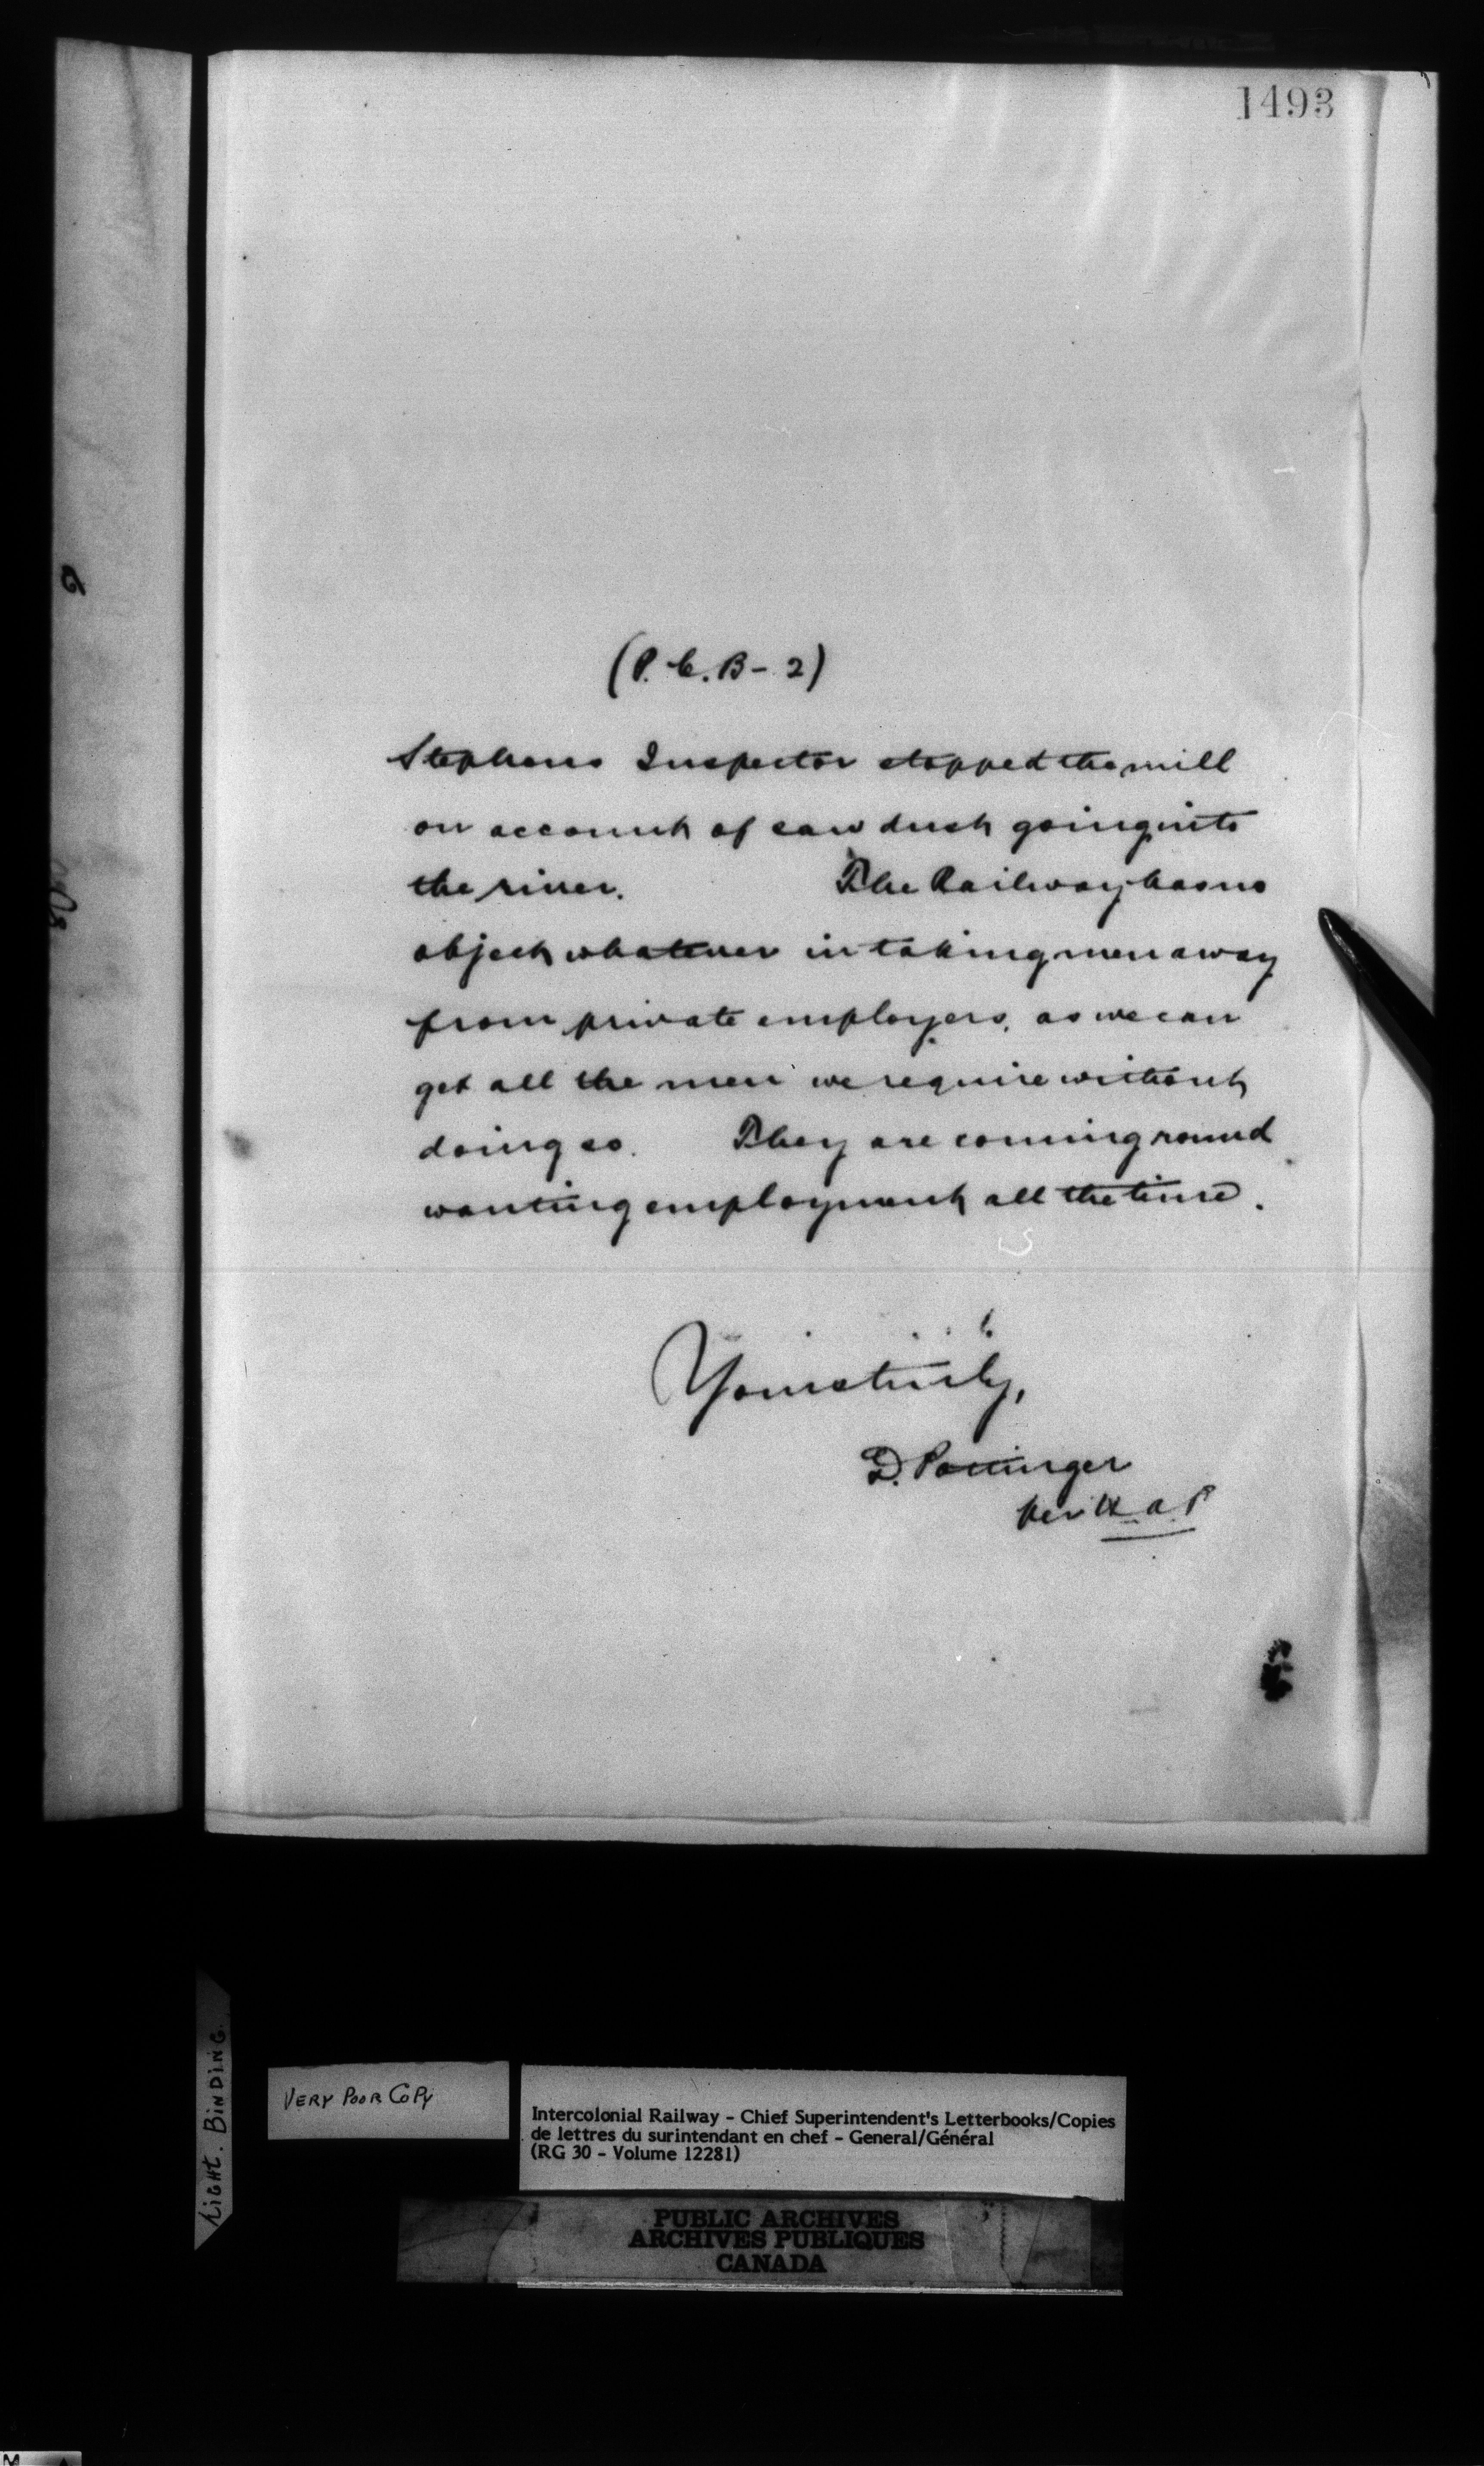 1493
(P. C. B - 2)
Stephens Inspector stopped the mill
on account of saw dust going into
the river. The Railway has no
object whatever in taking men away
from private employers, as we can
get all the men we require without
doing so. They are coming round
wanting employment all the time.
Yours truly,
D. Pottinger
per H a P
TIGHT. BINDING.
VERY POOR COPY
Intercolonial Railway - Chief Superintendent's Letterbooks/Copies
de lettres du surintendant en chef - General/Général
(RG 30 - Volume 12281)
PUBLIC ARCHIVES
ARCHIVES PUBLIQUES
CANADA